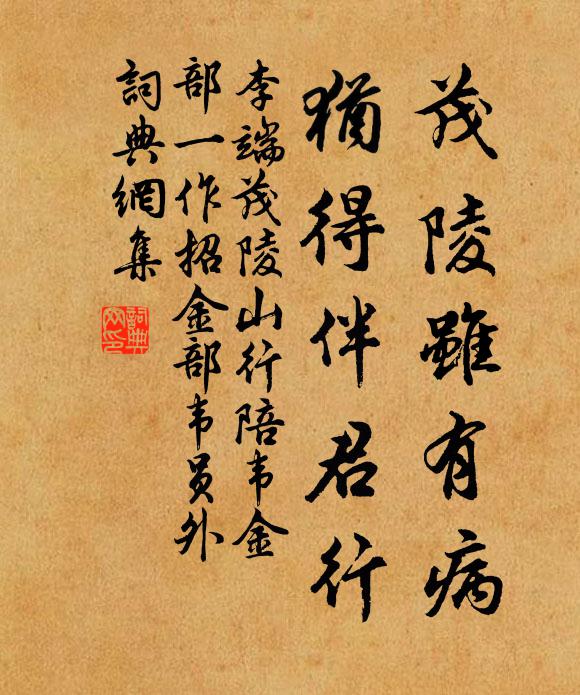 茂陵雖有病
猶得伴君行
李端茂陵山行陪韦金
部一作招金部韦員外
詞典網集
詞典網印